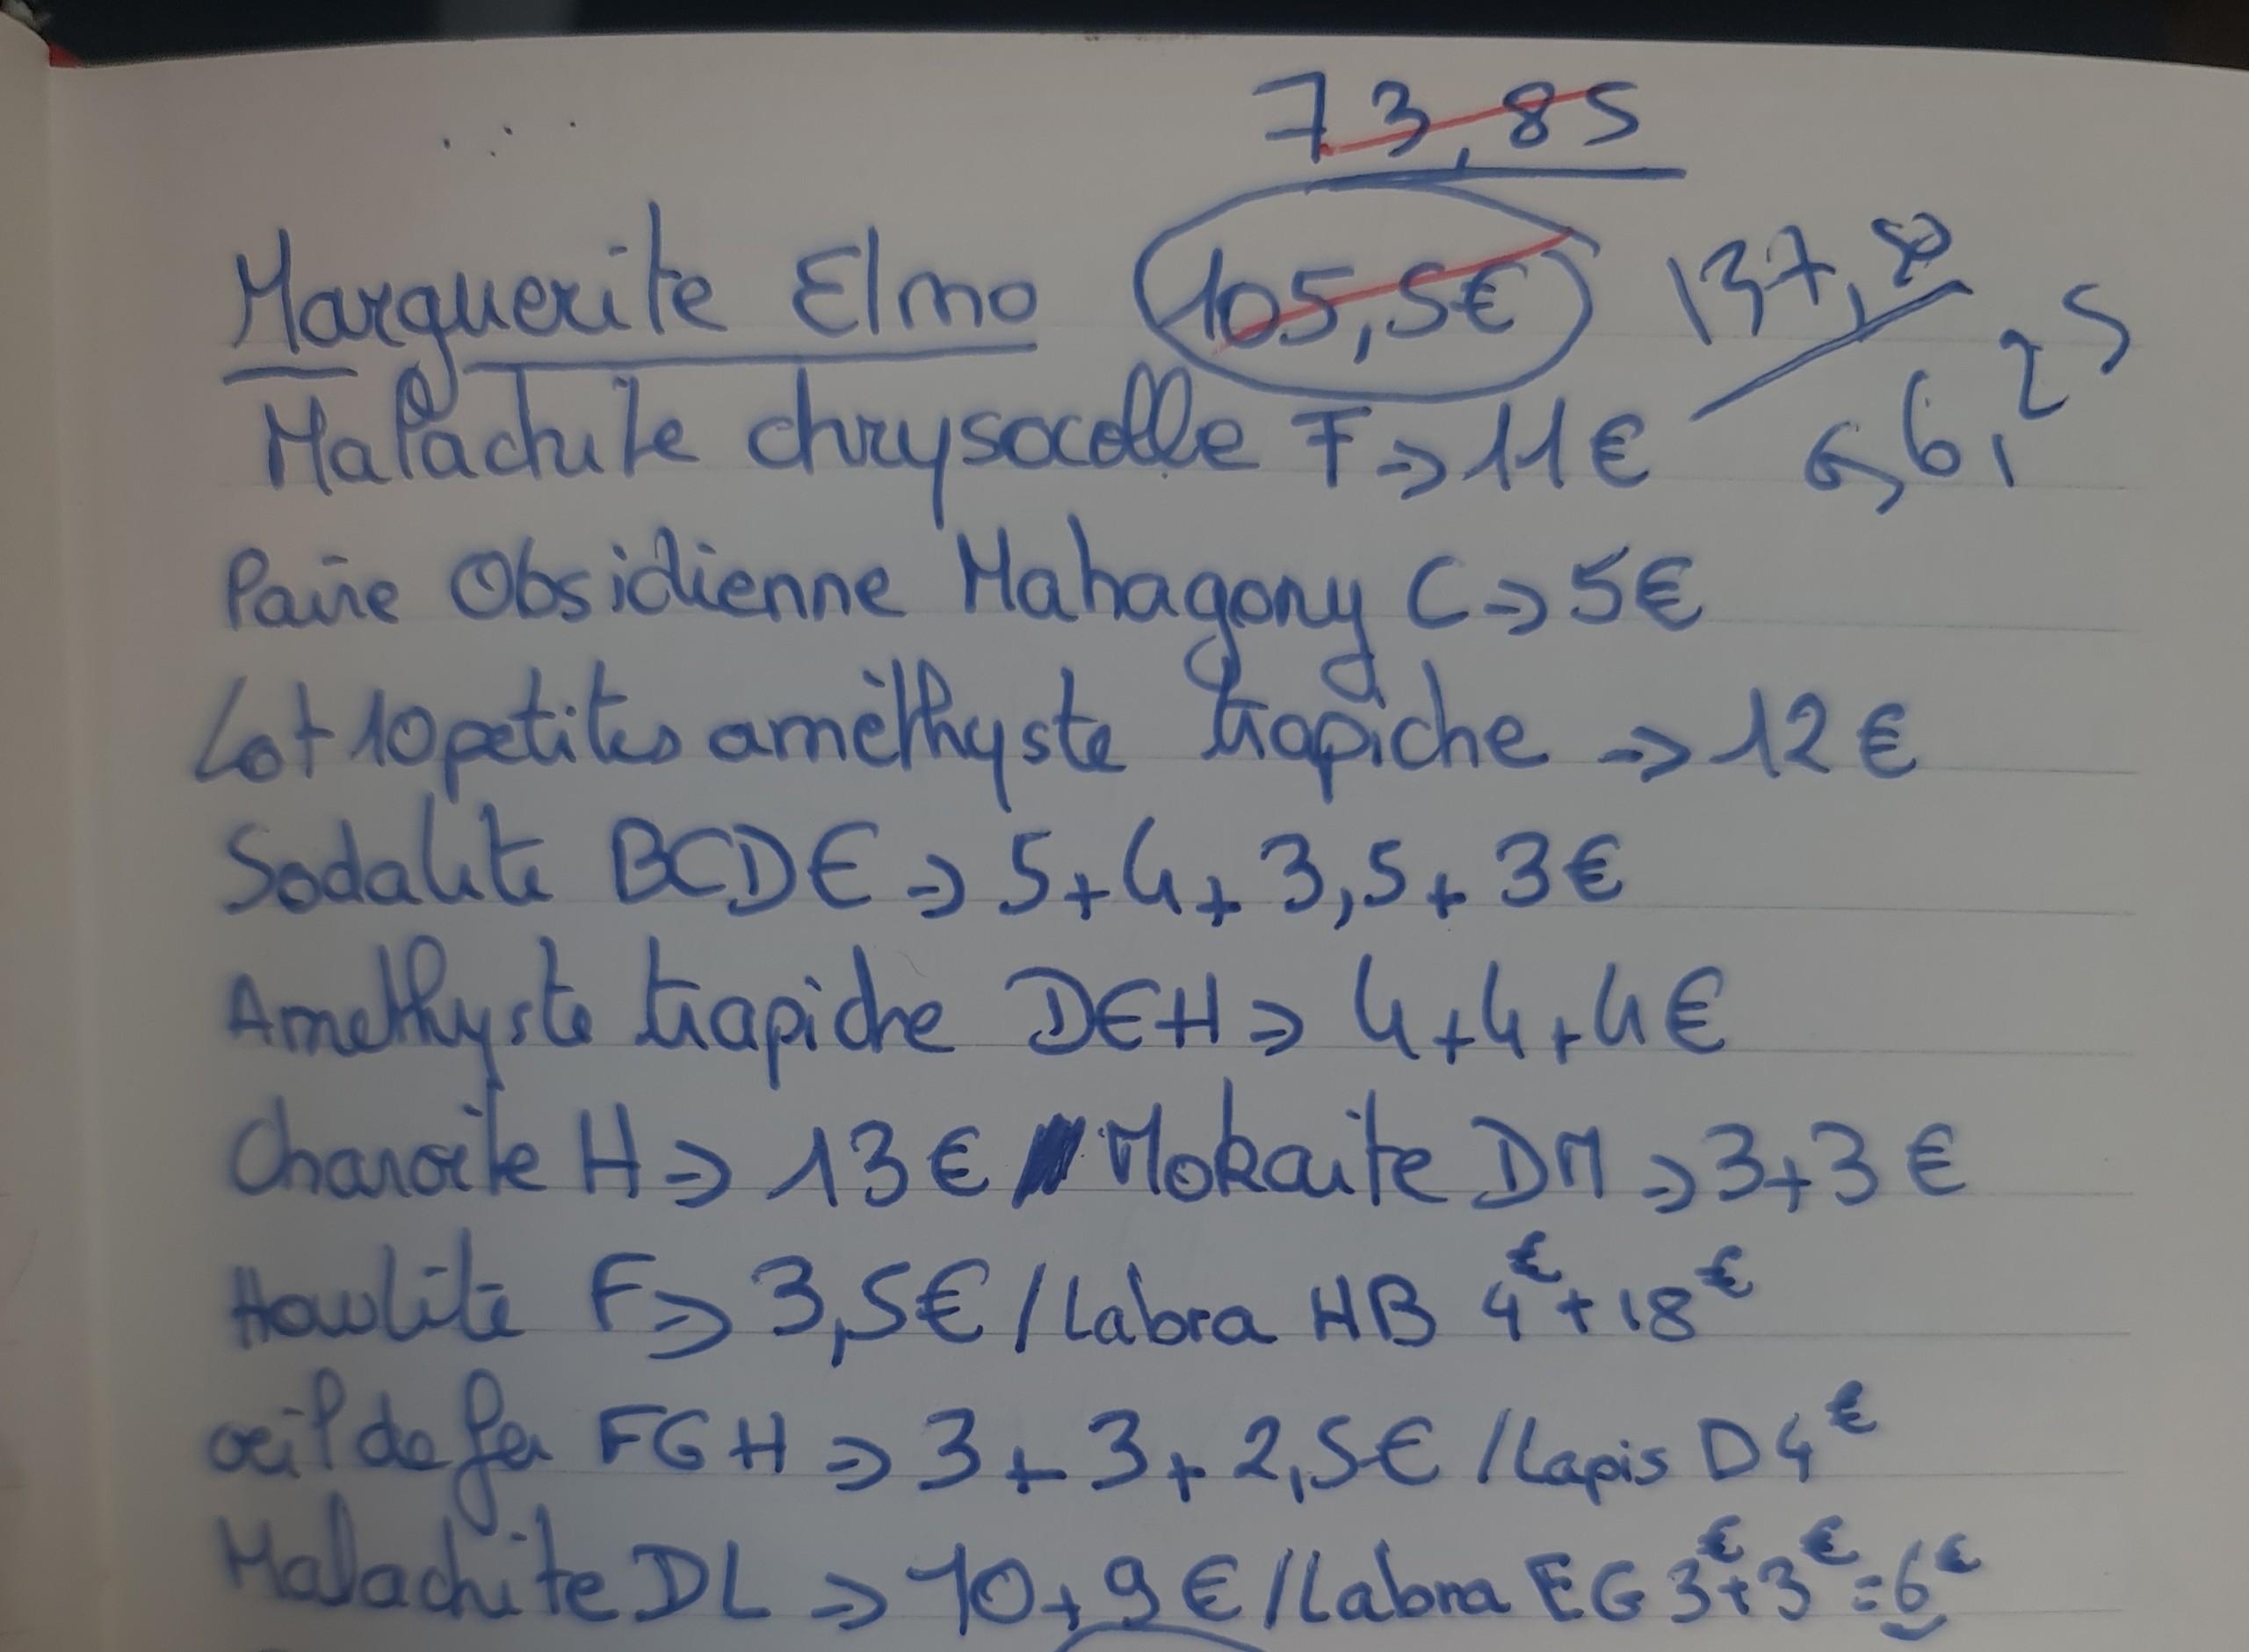 73,85
Marguerite Elmo 105,5€ 137,50
6,25
Malachite chrysocolle F => 11€
Paire Obsidienne Mahagony C => 5€
Lot 10 petites améthyste trapiche => 12€
Sodalite BCDE => 5+4+3,5+3€
Amethyste trapiche DEH => 4+4+4€
Charoite H => 13€ Mokaite DM => 3+3€
Howlite F => 3,5€ / Labra HB 4€+18€
œil de fer FGH => 3+3+2,5€ / Lapis D 4€
Malachite DL => 10+9€ / Labra EG 3€+3€=6€